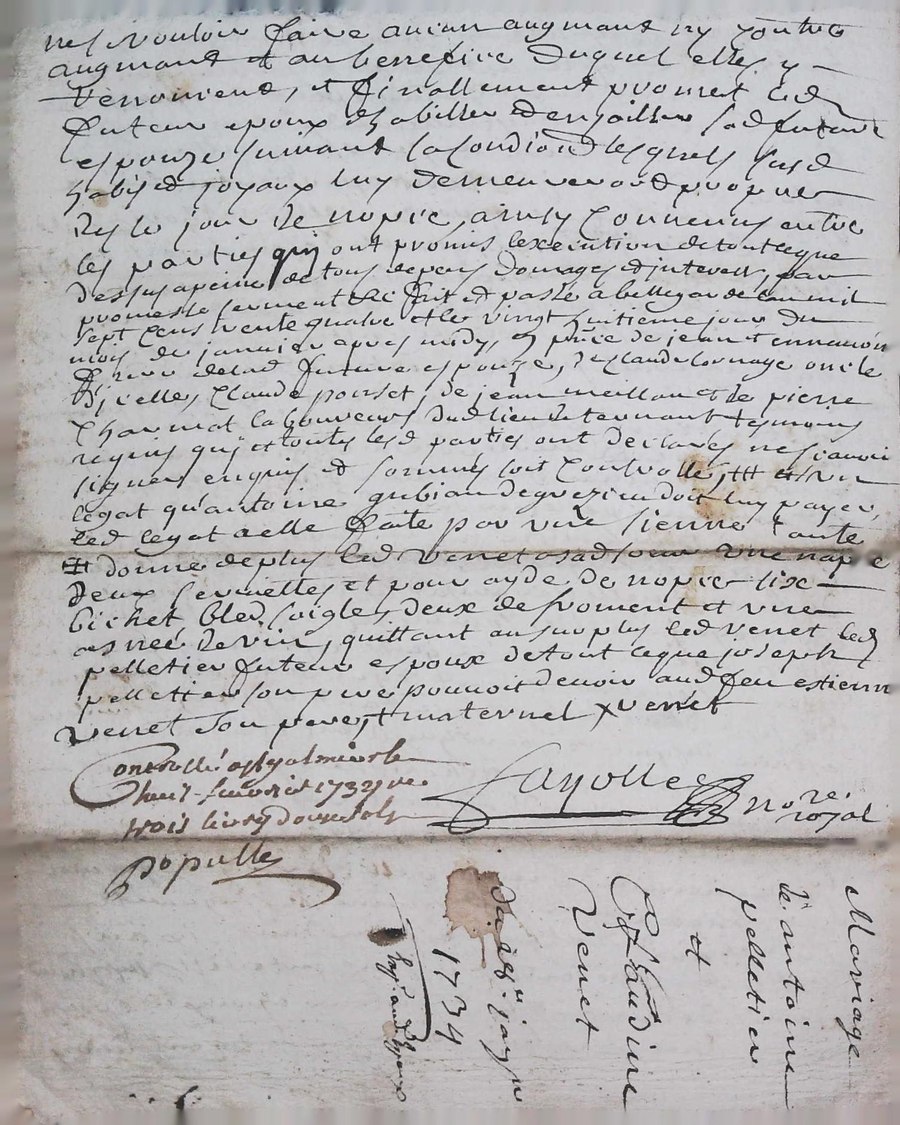 ne sy vouloir faire aucun augmant ny contre
augmant et au benefice duquel elles y
renoncent, et finallement promet led
futeur epoux dhabiller denjoiller sad future
espouze suivant sa condion lesquels susd
habis et joyaux luy demeureront propres
des le jour de nopce, ainsy convenus entre
les parties qui ont promis lexecution de tout ce que
dessus a peine de tous depens domages et interests, par
promesse serment &c fait et passé a bellegarde lan mil
sept cens trente quatre et le vingt huitieme jour du
mois de janvier apres midy, en pñce de jean
frere de lad future espouze, de Claude oncle
dicelle, Claude poncet, de jean meillan et de pierre
Charmat laboureurs dud lieu tesmoins
requis qui et toutes lesd parties ont declarés ne scavoir
signer enquis et sommés soit controllé, ## et un
legat qu'antoine gubian de grezieu doit luy payer,
led legat a elle faite par une sienne tante
## donne de plus led venet a sad soeur une nape
deux serviettes et pour ayde de nopce six
bichet bled soigle, deux de froment et une
asnée de vin, quittant au surplus led venet led
pelletier futeur espoux de tout ce que joseph
pelletier son pere pouvoit devoir aud feu estienne
venet son pere, + maternel x venet
Controllé a st galmier le
huit fevrier 1734 re
trois livres douze sols
Populle
Fayolle
nore
royal
Mariage
de antoine
pelletier
et
Claudine
Venet
du 28e janv
1734